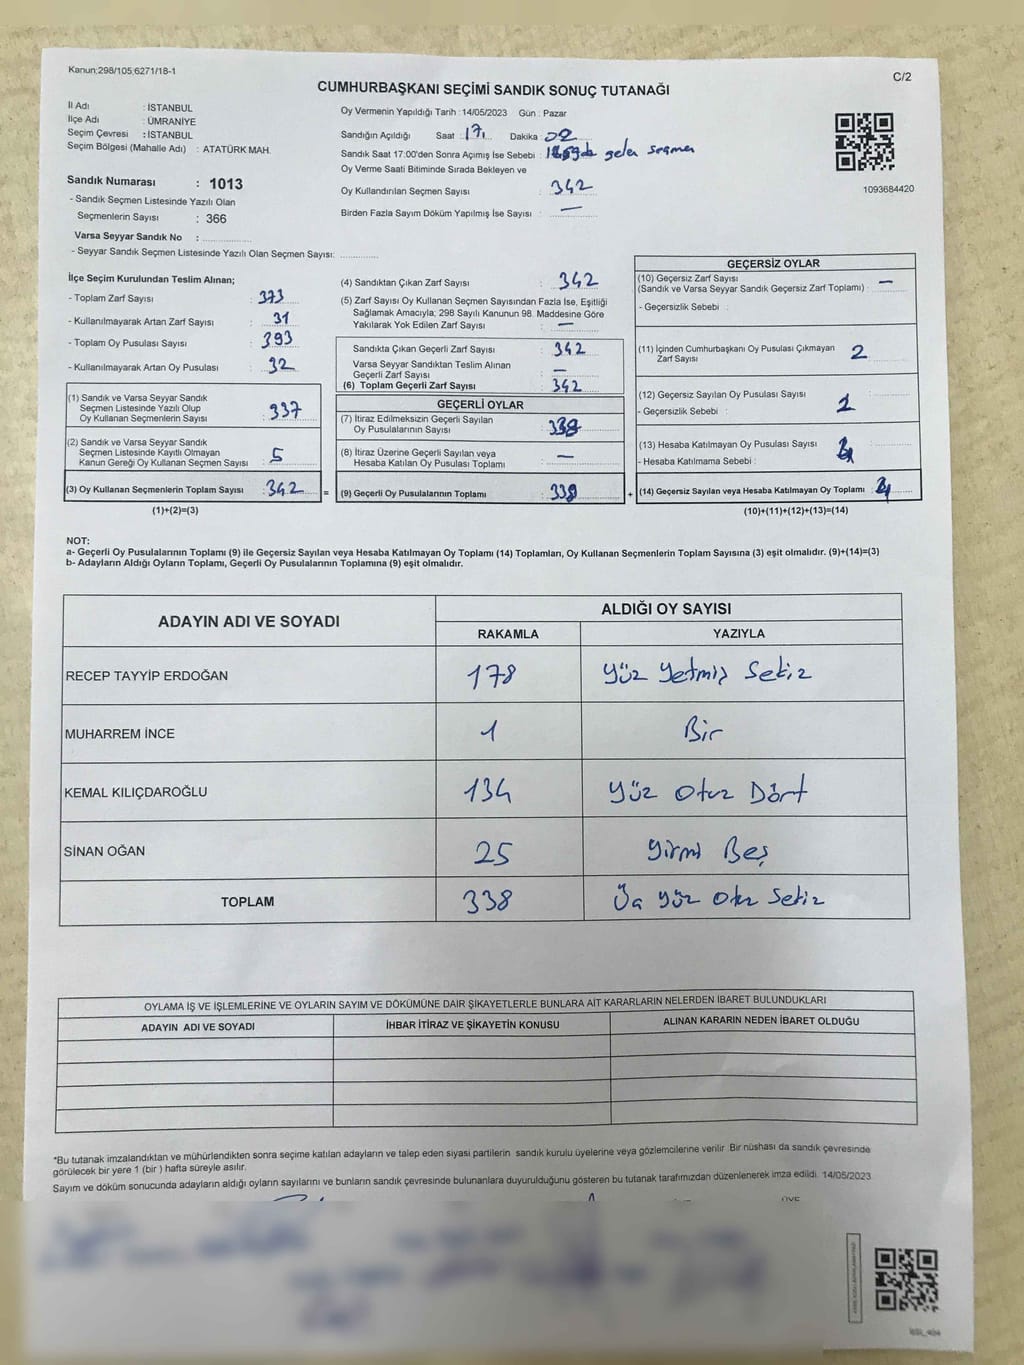 Kanun:298/105;6271/18-1
C/2
CUMHURBAŞKANI SEÇİMİ SANDIK SONUÇ TUTANAĞI
İl Adı : İSTANBUL
İlçe Adı : ÜMRANİYE
Seçim Çevresi : İSTANBUL
Seçim Bölgesi (Mahalle Adı) : ATATÜRK MAH.
Sandık Numarası : 1013
- Sandık Seçmen Listesinde Yazılı Olan
Seçmenlerin Sayısı : 366
Varsa Seyyar Sandık No :
- Seyyar Sandık Seçmen Listesinde Yazılı Olan Seçmen Sayısı:
Oy Vermenin Yapıldığı Tarih : 14/05/2023 Gün : Pazar
Sandığın Açıldığı Saat : 17. Dakika : 02
Sandık Saat 17:00'den Sonra Açımış İse Sebebi : gelen seçmen
Oy Verme Saati Bitiminde Sırada Bekleyen ve
Oy Kullandırılan Seçmen Sayısı : 342
Birden Fazla Sayım Döküm Yapılmış İse Sayısı : —
1093684420
İlçe Seçim Kurulundan Teslim Alınan;
- Toplam Zarf Sayısı : 373
- Kullanılmayarak Artan Zarf Sayısı : 31
- Toplam Oy Pusulası Sayısı : 393
- Kullanılmayarak Artan Oy Pusulası : 32
(1) Sandık ve Varsa Seyyar Sandık
Seçmen Listesinde Yazılı Olup
Oy Kullanan Seçmenlerin Sayısı : 337
(2) Sandık ve Varsa Seyyar Sandık
Seçmen Listesinde Kayıtlı Olmayan
Kanun Gereği Oy Kullanan Seçmen Sayısı : 5
(3) Oy Kullanan Seçmenlerin Toplam Sayısı : 342
(1)+(2)=(3)
=
(4) Sandıktan Çıkan Zarf Sayısı : 342
(5) Zarf Sayısı Oy Kullanan Seçmen Sayısından Fazla İse, Eşitliği
Sağlamak Amacıyla; 298 Sayılı Kanunun 98. Maddesine Göre
Yakılarak Yok Edilen Zarf Sayısı : —
Sandıkta Çıkan Geçerli Zarf Sayısı : 342
Varsa Seyyar Sandıktan Teslim Alınan
Geçerli Zarf Sayısı : —
(6) Toplam Geçerli Zarf Sayısı : 342
GEÇERLİ OYLAR
(7) İtiraz Edilmeksizin Geçerli Sayılan
Oy Pusulalarının Sayısı : 338
(8) İtiraz Üzerine Geçerli Sayılan veya
Hesaba Katılan Oy Pusulası Toplamı : —
(9) Geçerli Oy Pusulalarının Toplamı : 338
+
GEÇERSİZ OYLAR
(10) Geçersiz Zarf Sayısı
(Sandık ve Varsa Seyyar Sandık Geçersiz Zarf Toplamı) : —
- Geçersizlik Sebebi :
(11) İçinden Cumhurbaşkanı Oy Pusulası Çıkmayan
Zarf Sayısı 2
(12) Geçersiz Sayılan Oy Pusulası Sayısı :
- Geçersizlik Sebebi :
(13) Hesaba Katılmayan Oy Pusulası Sayısı :
- Hesaba Katılmama Sebebi :
(14) Geçersiz Sayılan veya Hesaba Katılmayan Oy Toplamı :
(10)+(11)+(12)+(13)=(14)
NOT:
a- Geçerli Oy Pusulalarının Toplamı (9) ile Geçersiz Sayılan veya Hesaba Katılmayan Oy Toplamı (14) Toplamları, Oy Kullanan Seçmenlerin Toplam Sayısına (3) eşit olmalıdır. (9)+(14)=(3)
b- Adayların Aldığı Oyların Toplamı, Geçerli Oy Pusulalarının Toplamına (9) eşit olmalıdır.
ADAYIN ADI VE SOYADI
ALDIĞI OY SAYISI
RAKAMLA YAZIYLA
RECEP TAYYİP ERDOĞAN 178 Yüz Yetmiş Sekiz
MUHARREM İNCE 1 Bir
KEMAL KILIÇDAROĞLU 134 Yüz Otuz Dört
SİNAN OĞAN 25 Yirmi Beş
TOPLAM 338 Üç Yüz Otuz Sekiz
OYLAMA İŞ VE İŞLEMLERİNE VE OYLARIN SAYIM VE DÖKÜMÜNE DAİR ŞİKAYETLERLE BUNLARA AİT KARARLARIN NELERDEN İBARET BULUNDUKLARI
ADAYIN ADI VE SOYADI İHBAR İTİRAZ VE ŞİKAYETİN KONUSU ALINAN KARARIN NEDEN İBARET OLDUĞU
*Bu tutanak imzalandıktan ve mühürlendikten sonra seçime katılan adayların ve talep eden siyasi partilerin sandık kurulu üyelerine veya gözlemcilerine verilir. Bir nüshası da sandık çevresinde
görülecek bir yere 1 (bir) hafta süreyle asılır.
Sayım ve döküm sonucunda adayların aldığı oyların sayılarını ve bunların sandık çevresinde bulunanlara duyurulduğunu gösteren bu tutanak tarafımızdan düzenlenerek imza edildi. 14/05/2023